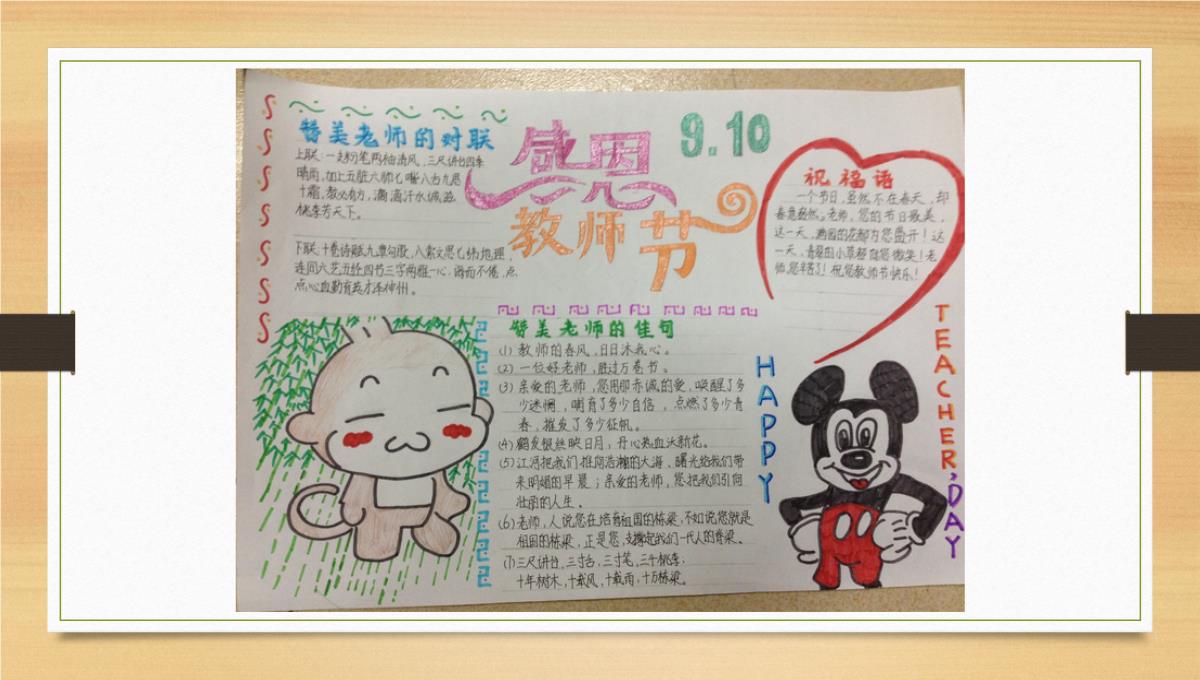 赞美老师的对联
上联:一支粉笔两袖清风,三尺讲台四季
晴雨,加上五脏六腑七嘴八舌九思
十霜,教必有方,滴滴汗水诚滋
桃李芳天下。
下联:十卷诗赋九章勾股,八索文思七纬地理,
连同六艺五经四书三字两雅一心,诲而不倦,点
点心血勤育英才泽神州。
感恩
教师节
9.10
祝福语
一个节日,虽然不在春天,却
春意盎然。老师,您的节日最美,
这一天,满园的花都为您盛开!这
一天,青翠的小草都向您微笑!老
师,您辛苦了!祝您教师节快乐!
赞美老师的佳句
(1)教师的春风,日日沐我心。
(2)一位好老师,胜过万卷书。
(3)亲爱的老师,您用那赤诚的爱,唤醒了多
少迷惘,哺育了多少自信,点燃了多少青
春,摧发了多少征帆。
(4)鹤发银丝映日月,丹心热血沃新花。
(5)江河把我们推向浩瀚的大海,曙光给我们带
来明媚的早晨;亲爱的老师,您把我们引向
壮丽的人生。
(6)老师,人说您在培育祖国的栋梁,不如说您就是
祖国的栋梁,正是您,支撑起我们一代人的脊梁。
(7)三尺讲台,三寸舌,三寸笔,三千桃李;
十年树木,十载风,十载雨,十万栋梁。
HAPPY
TEACHER'DAY